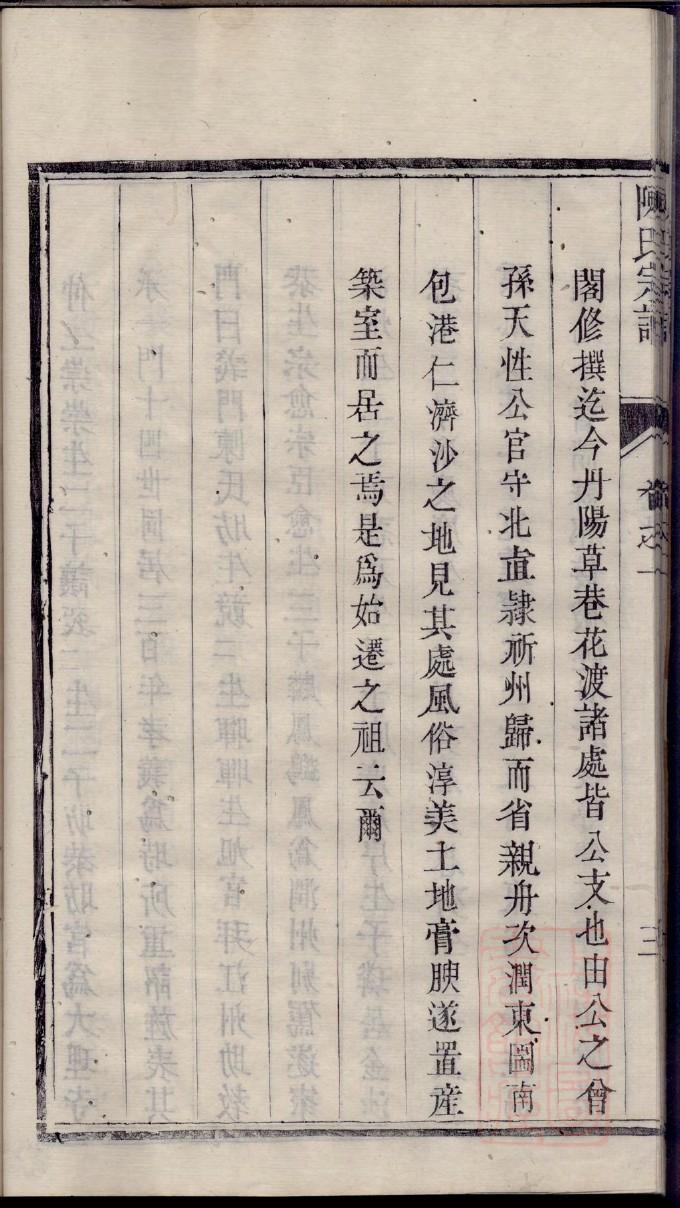 陳氏宗譜
卷之一
三
閣修撰迄今丹陽草巷花渡諸處皆公支也由公之曾
孫天性公官守北直隸祈州歸而省親舟次潤東圌南
包港仁濟沙之地見其處風俗淳美土地膏腴遂置産
築室而居之焉是爲始遷之祖云爾